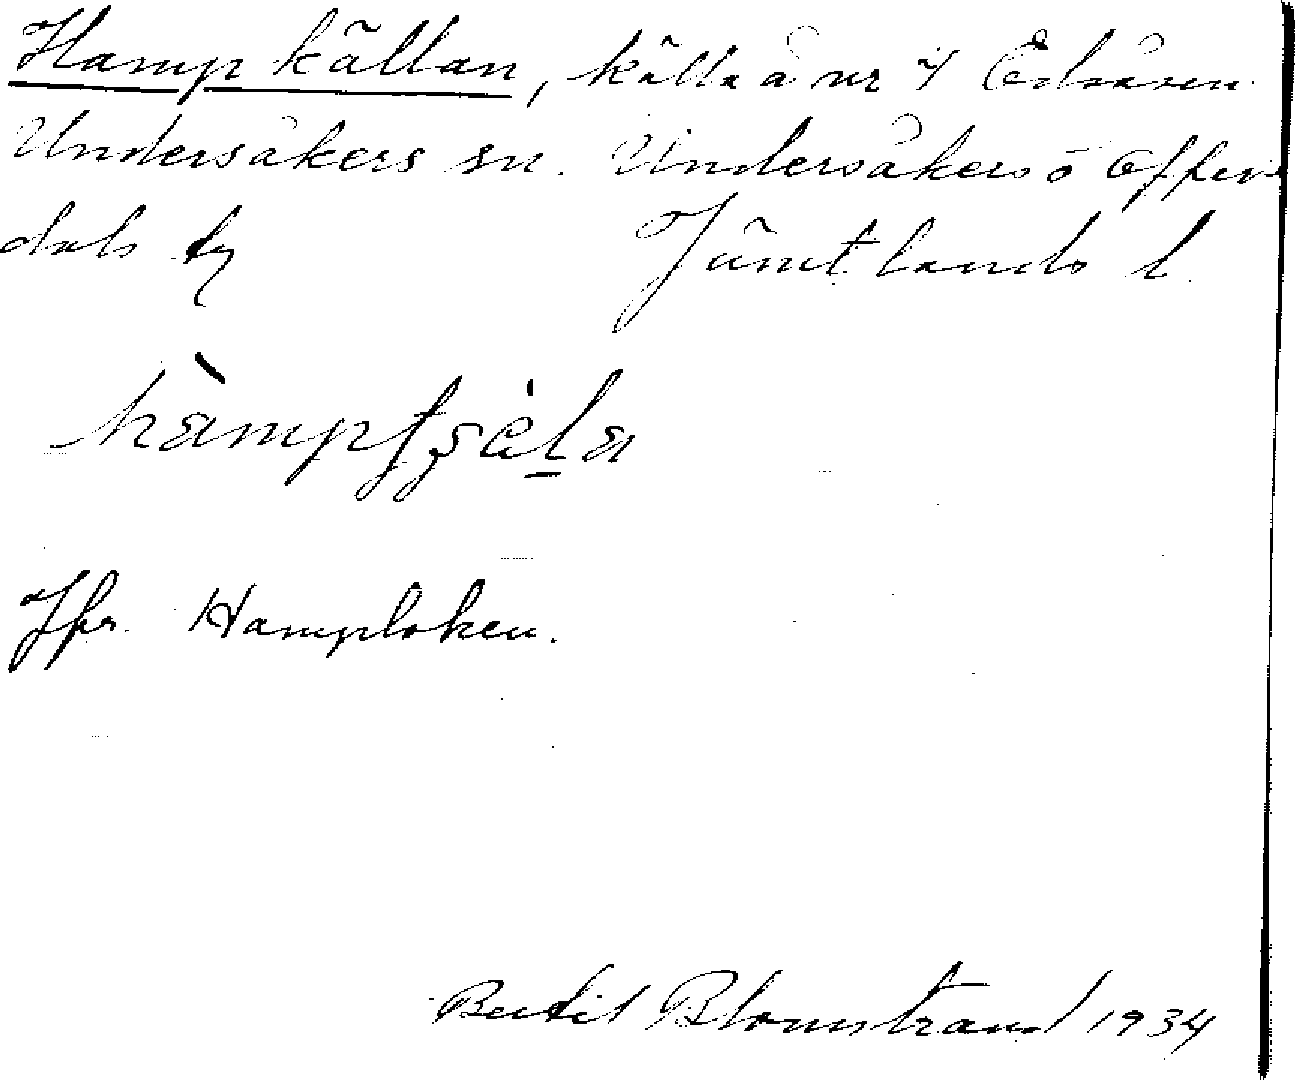 Hampkällan, källa å nr 4 Edsåsen
Undersåkers sn. Undersåkers o Offer
dals tg Jämtlands l.
hàmpʃçèl̠a
Jfr. Hamploken.
Bertil Blomstrand 1934